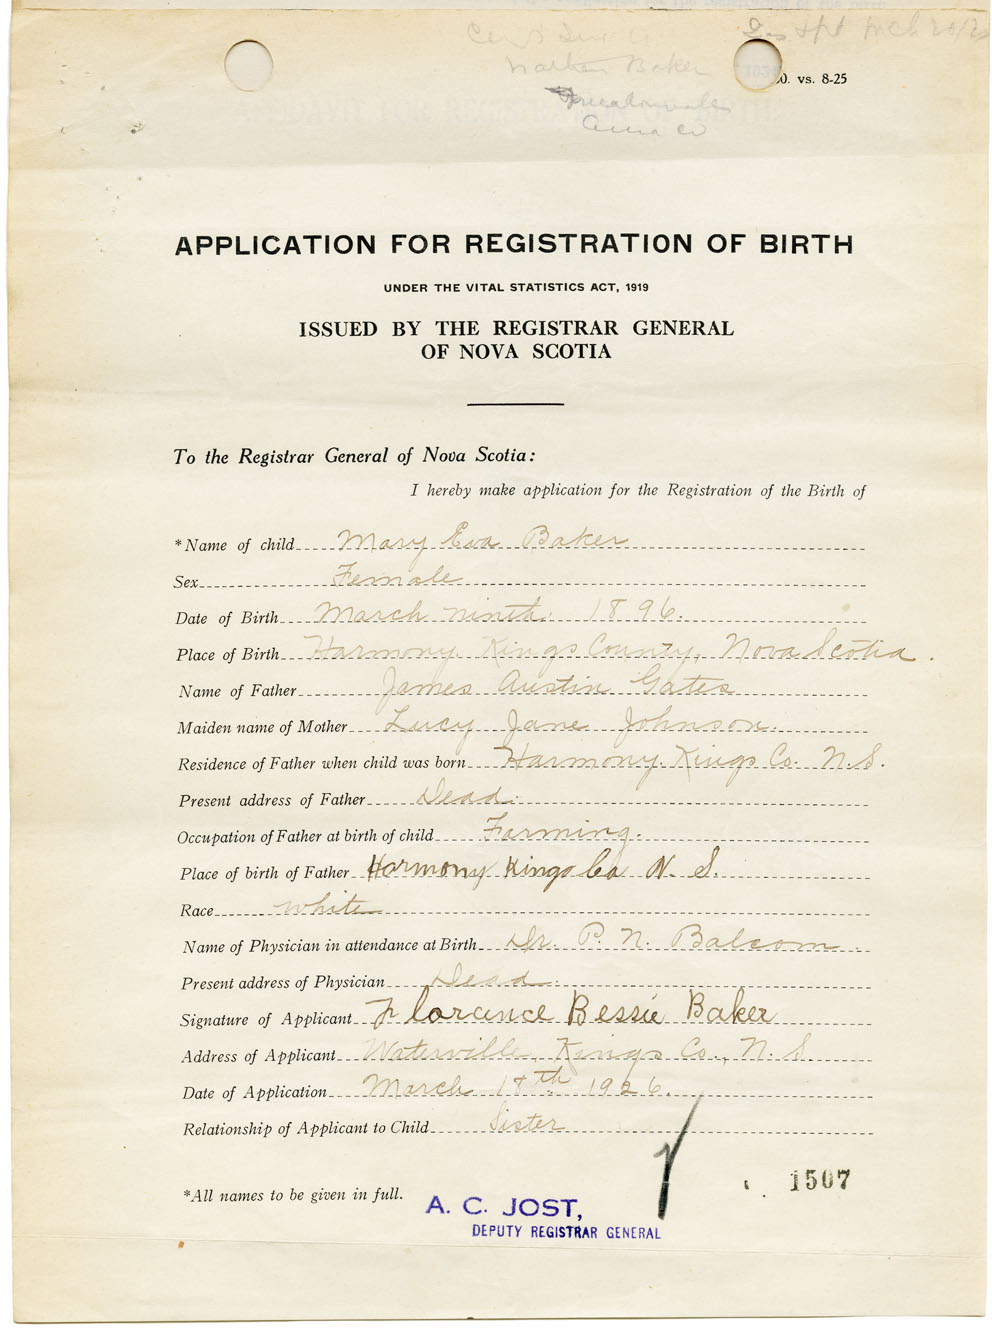 Nathan Baker
0. vs. 8-25
APPLICATION FOR REGISTRATION OF BIRTH
UNDER THE VITAL STATISTICS ACT, 1919
ISSUED BY THE REGISTRAR GENERAL
OF NOVA SCOTIA
To the Registrar General of Nova Scotia:
I hereby make application for the Registration of the Birth of
*Name of child Mary Eva Baker
Sex Female
Date of Birth March ninth. 1896.
Place of Birth Harmony Kings County, Nova Scotia.
Name of Father James Austin Gates
Maiden name of Mother Lucy Jane Johnson.
Residence of Father when child was born Harmony. Kings Co. N.S.
Present address of Father Dead.
Occupation of Father at birth of child Farming.
Place of birth of Father Harmony Kings Co N. S.
Race white
Name of Physician in attendance at Birth Dr. P. N. Balcom.
Present address of Physician Dead.
Signature of Applicant Florence Bessie Baker
Address of Applicant Waterville, Kings Co., N.S
Date of Application March 18th 1926.
Relationship of Applicant to Child Sister
1507
*All names to be given in full.
A. C. JOST,
DEPUTY REGISTRAR GENERAL